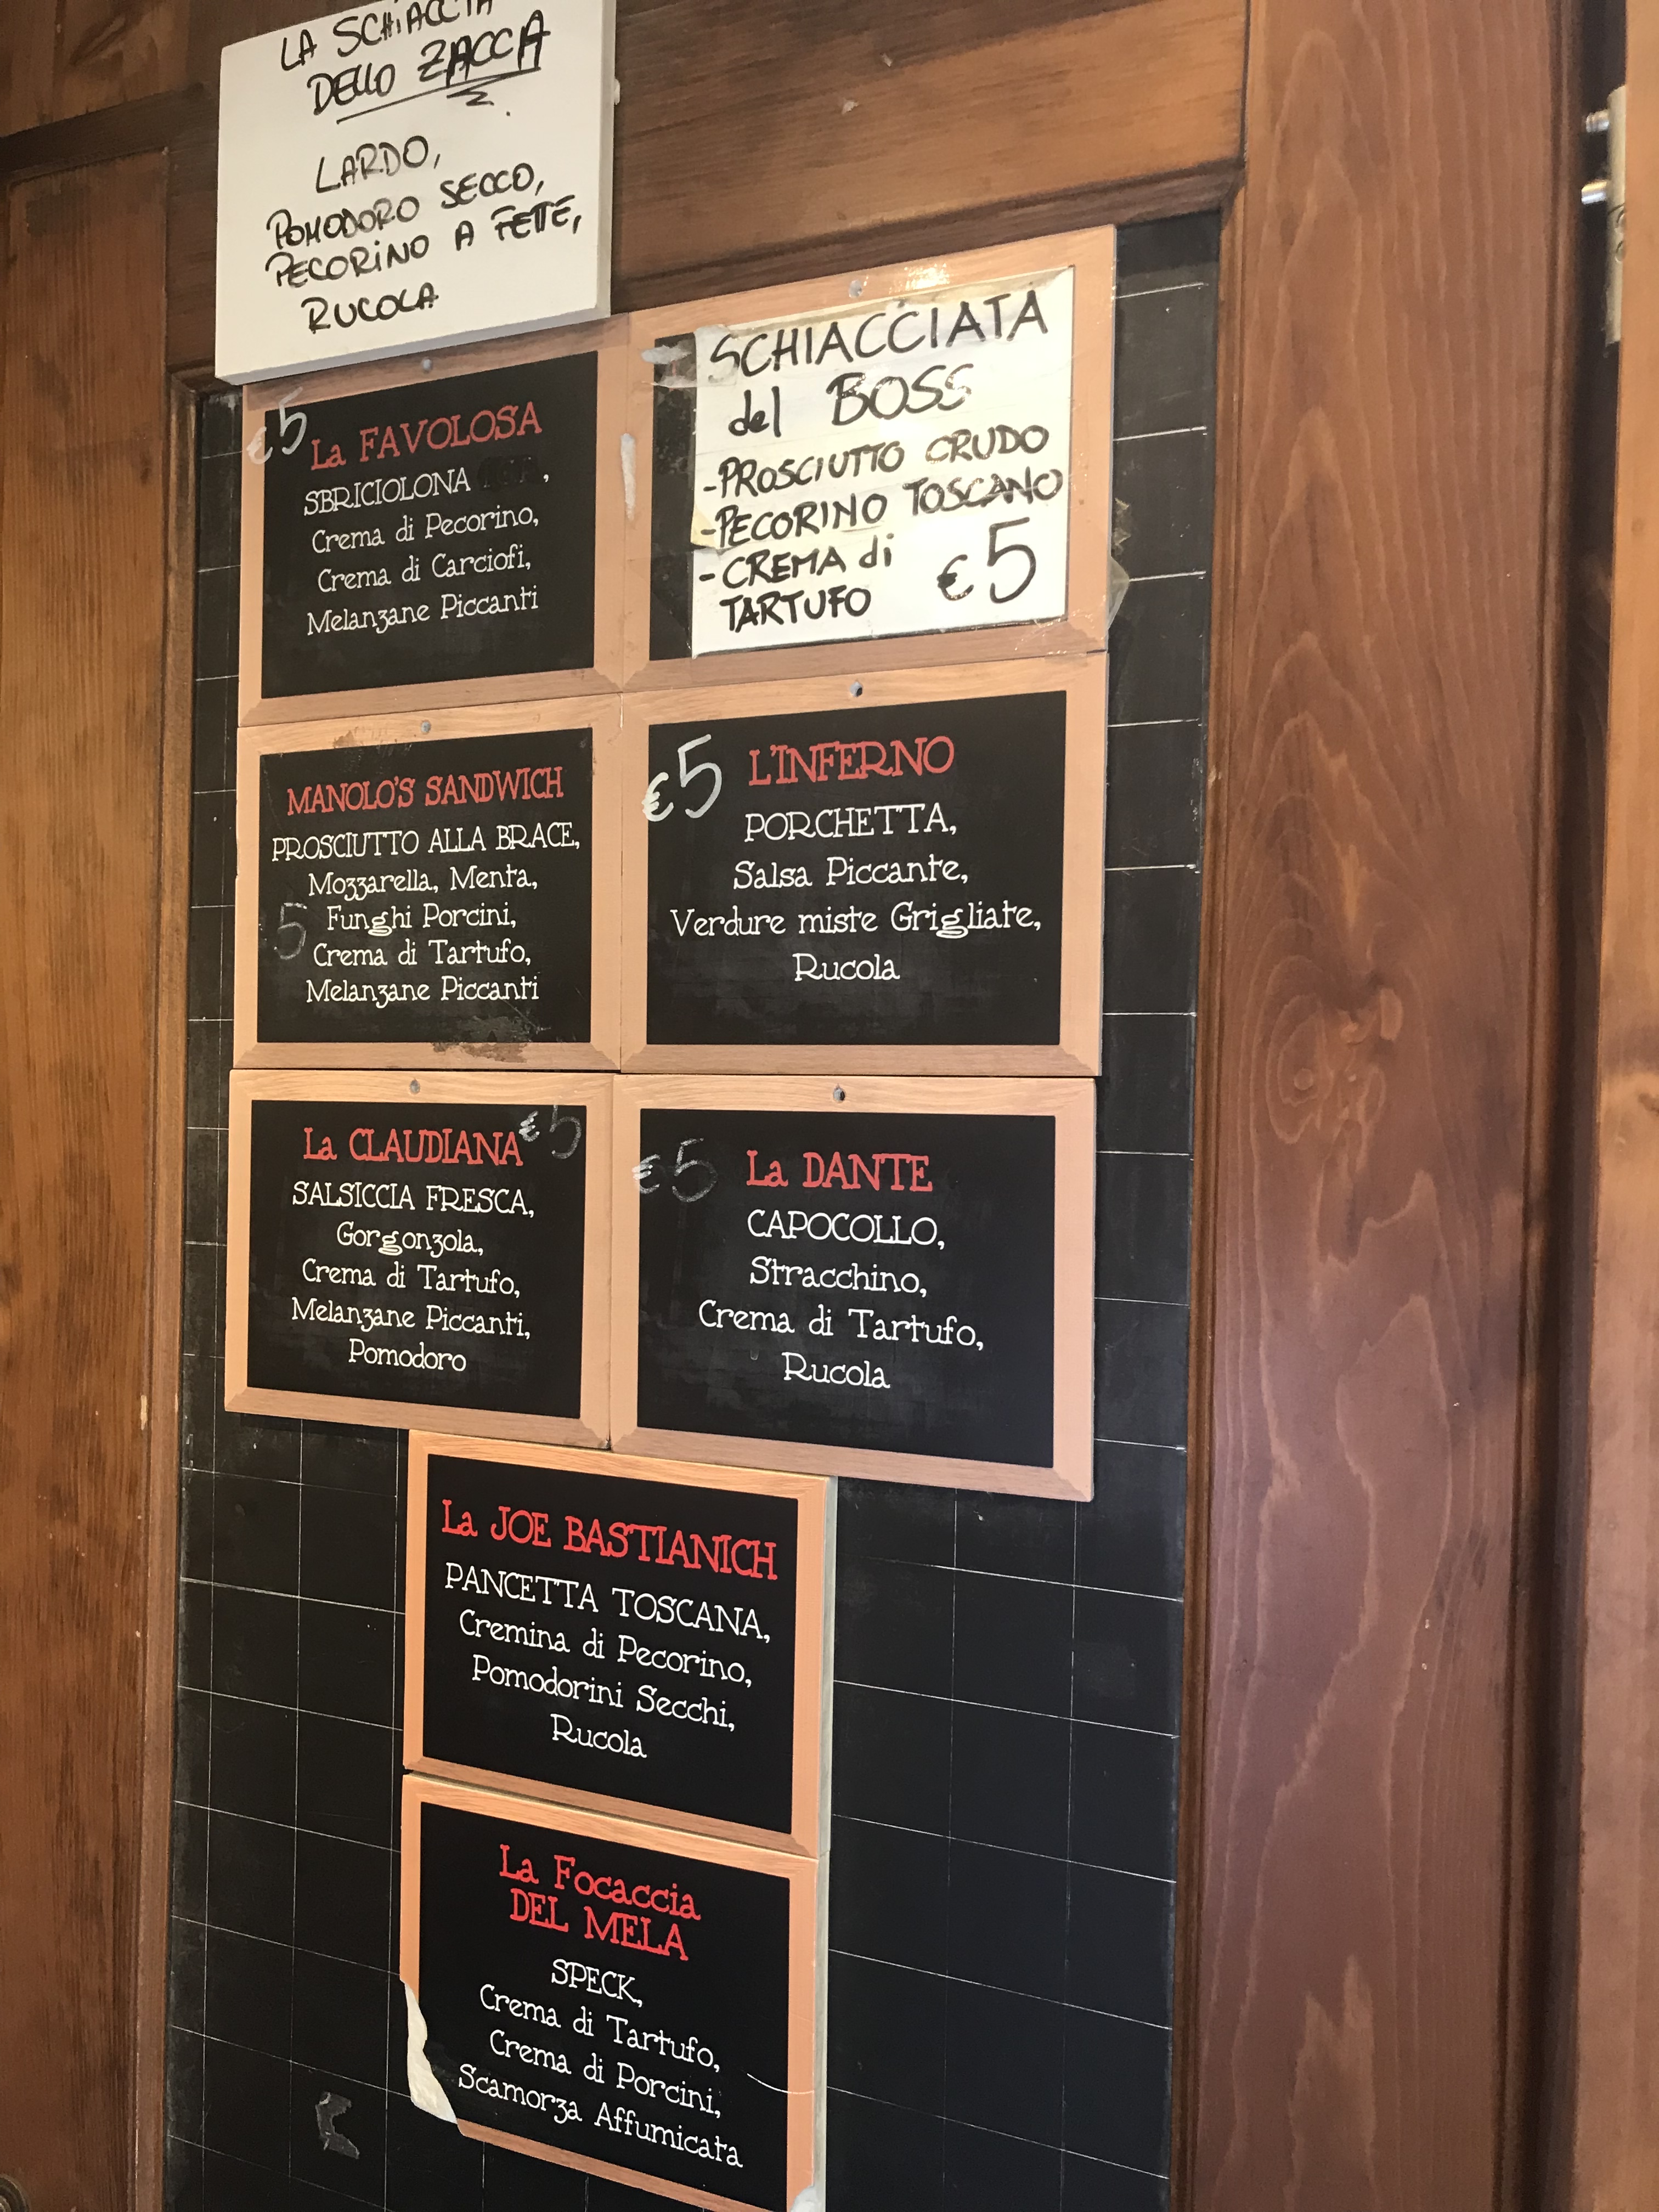 LA SCHIACCIA
DELLO ZACCA
LARDO,
POMODORO SECCO,
PECORINO A FETTE,
RUCOLA
€5
La FAVOLOSA
SBRICIOLONA ,
Crema di Pecorino,
Crema di Carciofi,
Melanzane Piccanti
SCHIACCIATA
del BOSS
-PROSCIUTTO CRUDO
-PECORINO TOSCANO
-CREMA di
TARTUFO
€5
MANOLO'S SANDWICH
PROSCIUTTO ALLA BRACE,
Mozzarella, Menta,
5 Funghi Porcini,
Crema di Tartufo,
Melanzane Piccanti
€5 L'INFERNO
PORCHETTA,
Salsa Piccante,
Verdure miste Grigliate,
Rucola
La CLAUDIANA €5
SALSICCIA FRESCA,
Gorgonzola,
Crema di Tartufo,
Melanzane Piccanti,
Pomodoro
€5 La DANTE
CAPOCOLLO,
Stracchino,
Crema di Tartufo,
Rucola
La JOE BASTIANICH
PANCETTA TOSCANA,
Cremina di Pecorino,
Pomodorini Secchi,
Rucola
La Focaccia
DEL MELA
SPECK,
Crema di Tartufo,
Crema di Porcini,
Scamorza Affumicata